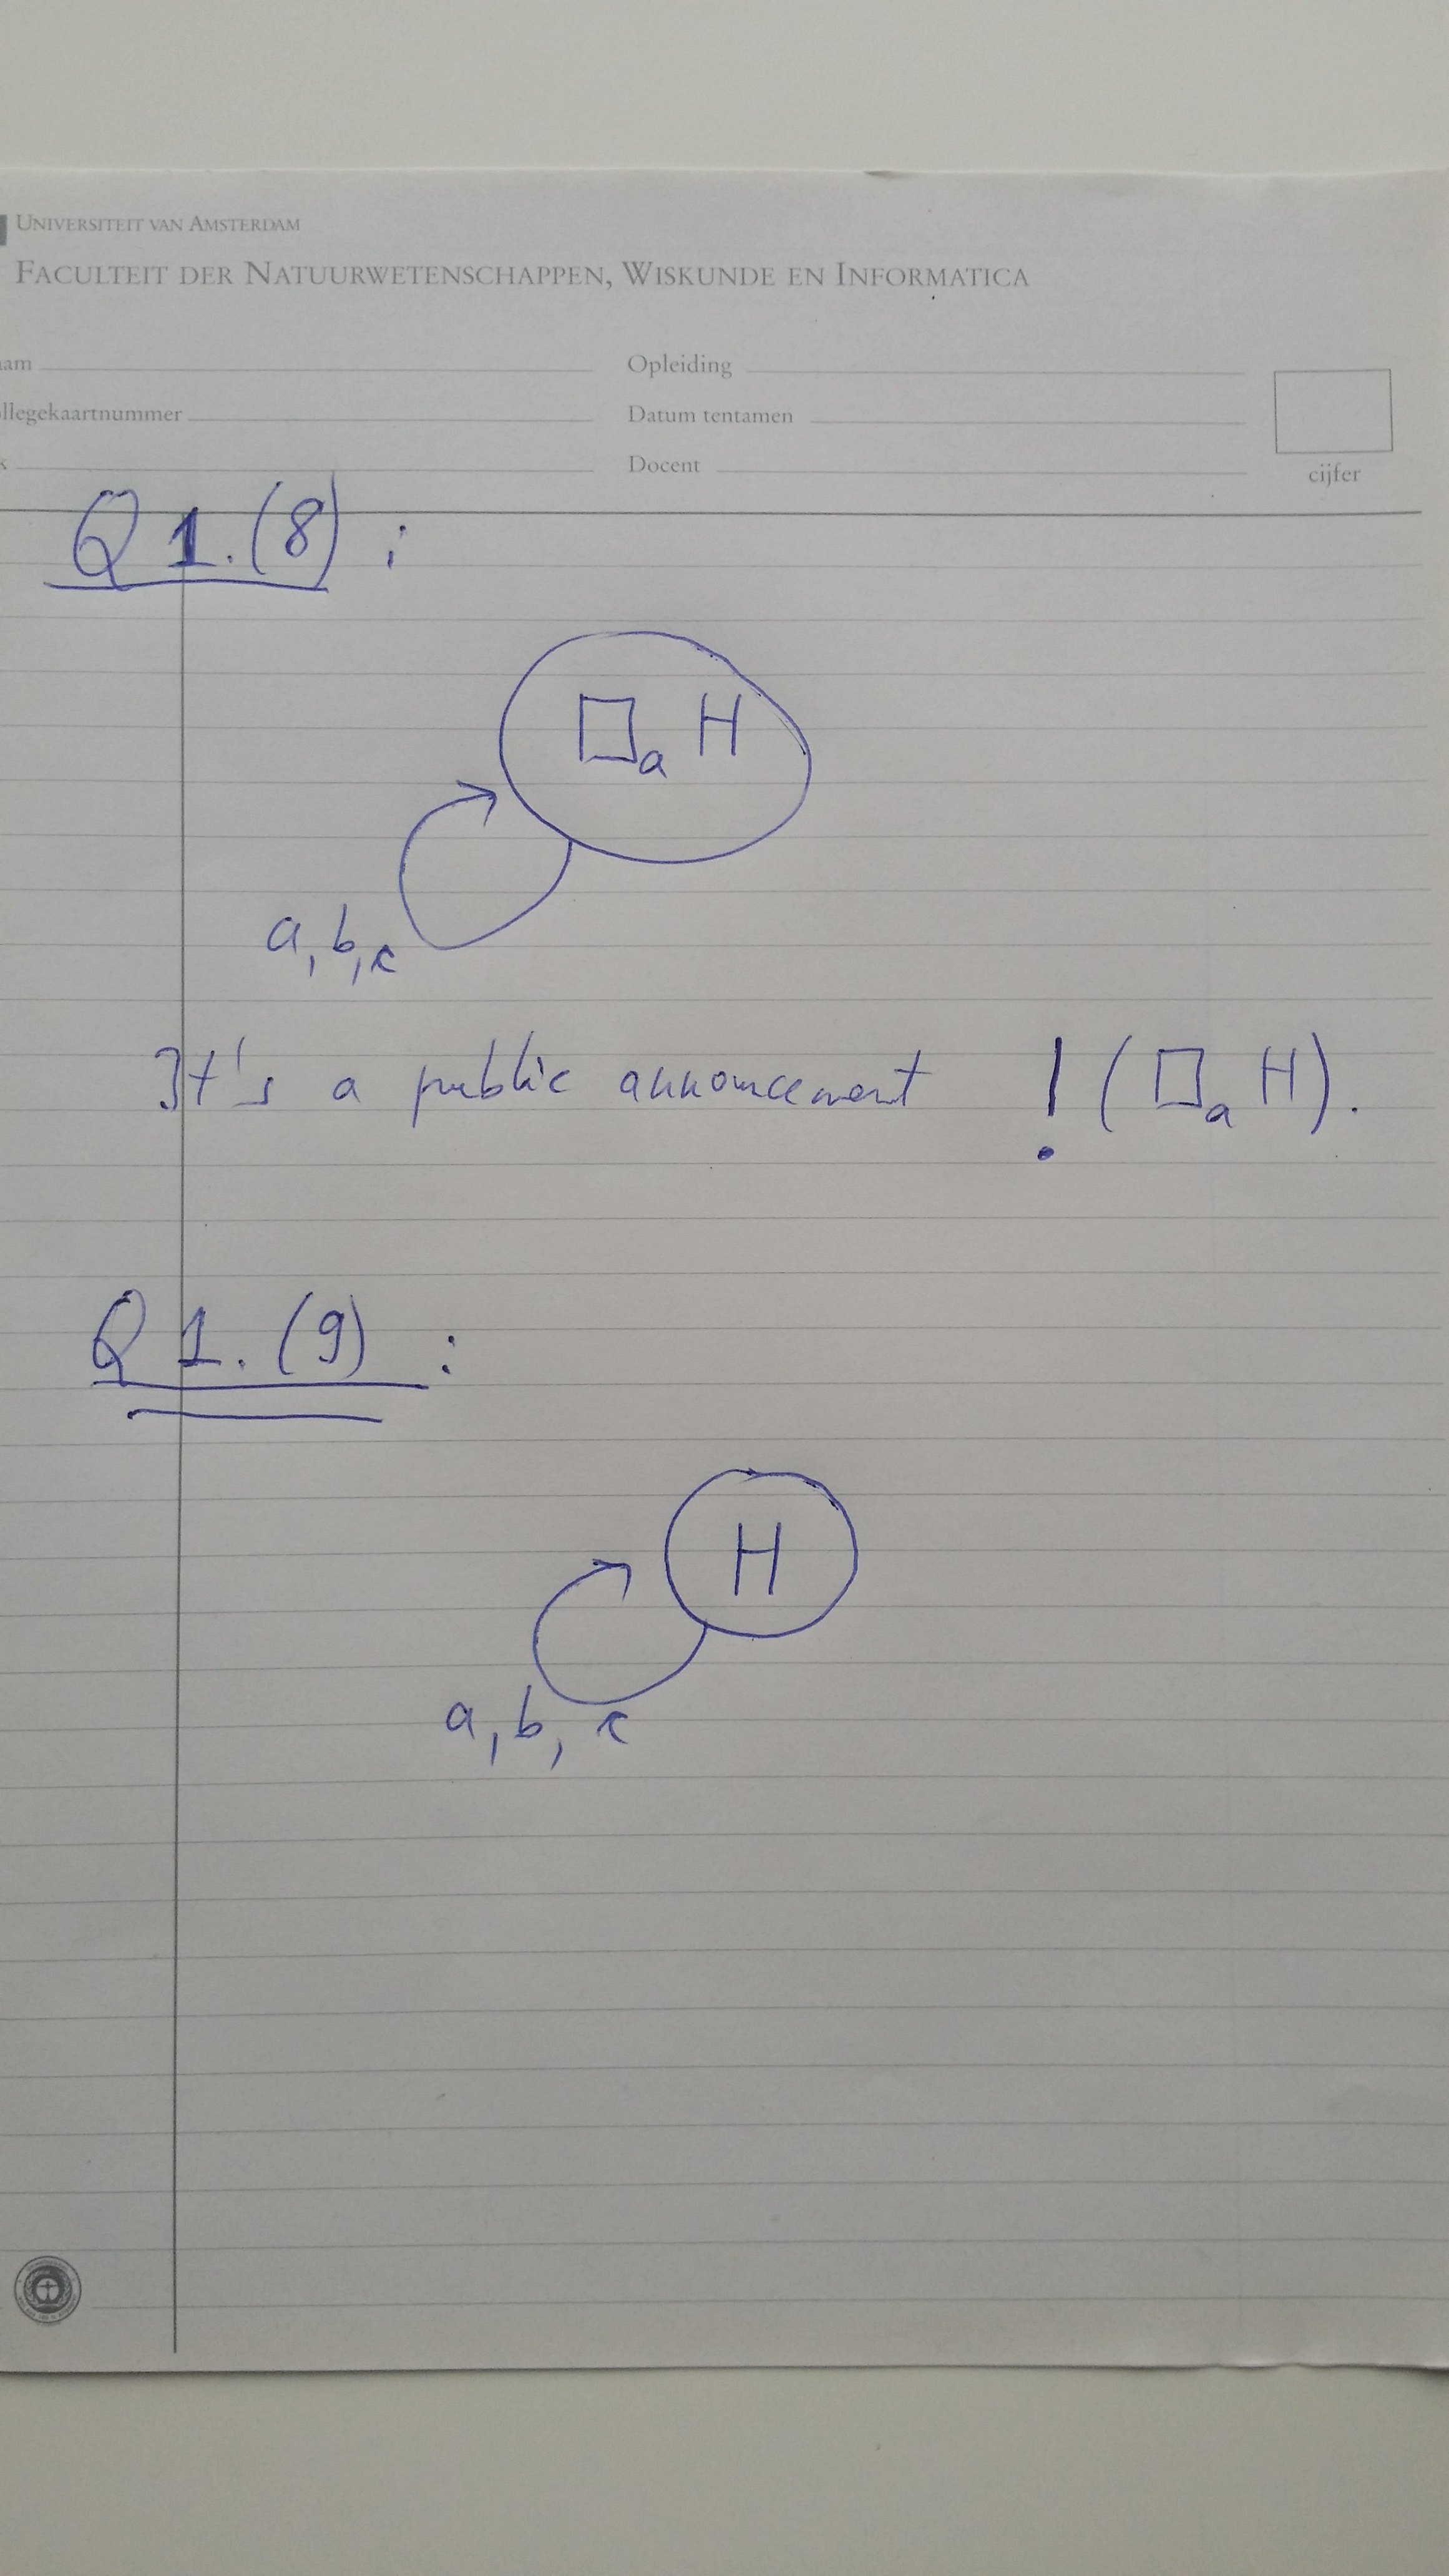 UNIVERSITEIT VAN AMSTERDAM
FACULTEIT DER NATUURWETENSCHAPPEN, WISKUNDE EN INFORMATICA
aam Opleiding
llegekaartnummer Datum tentamen
Docent
cijfer
Q 1. (8) :
□a H
a, b, c
It's a public announcement ! (□a H).
Q 1. (9) :
H
a, b, c